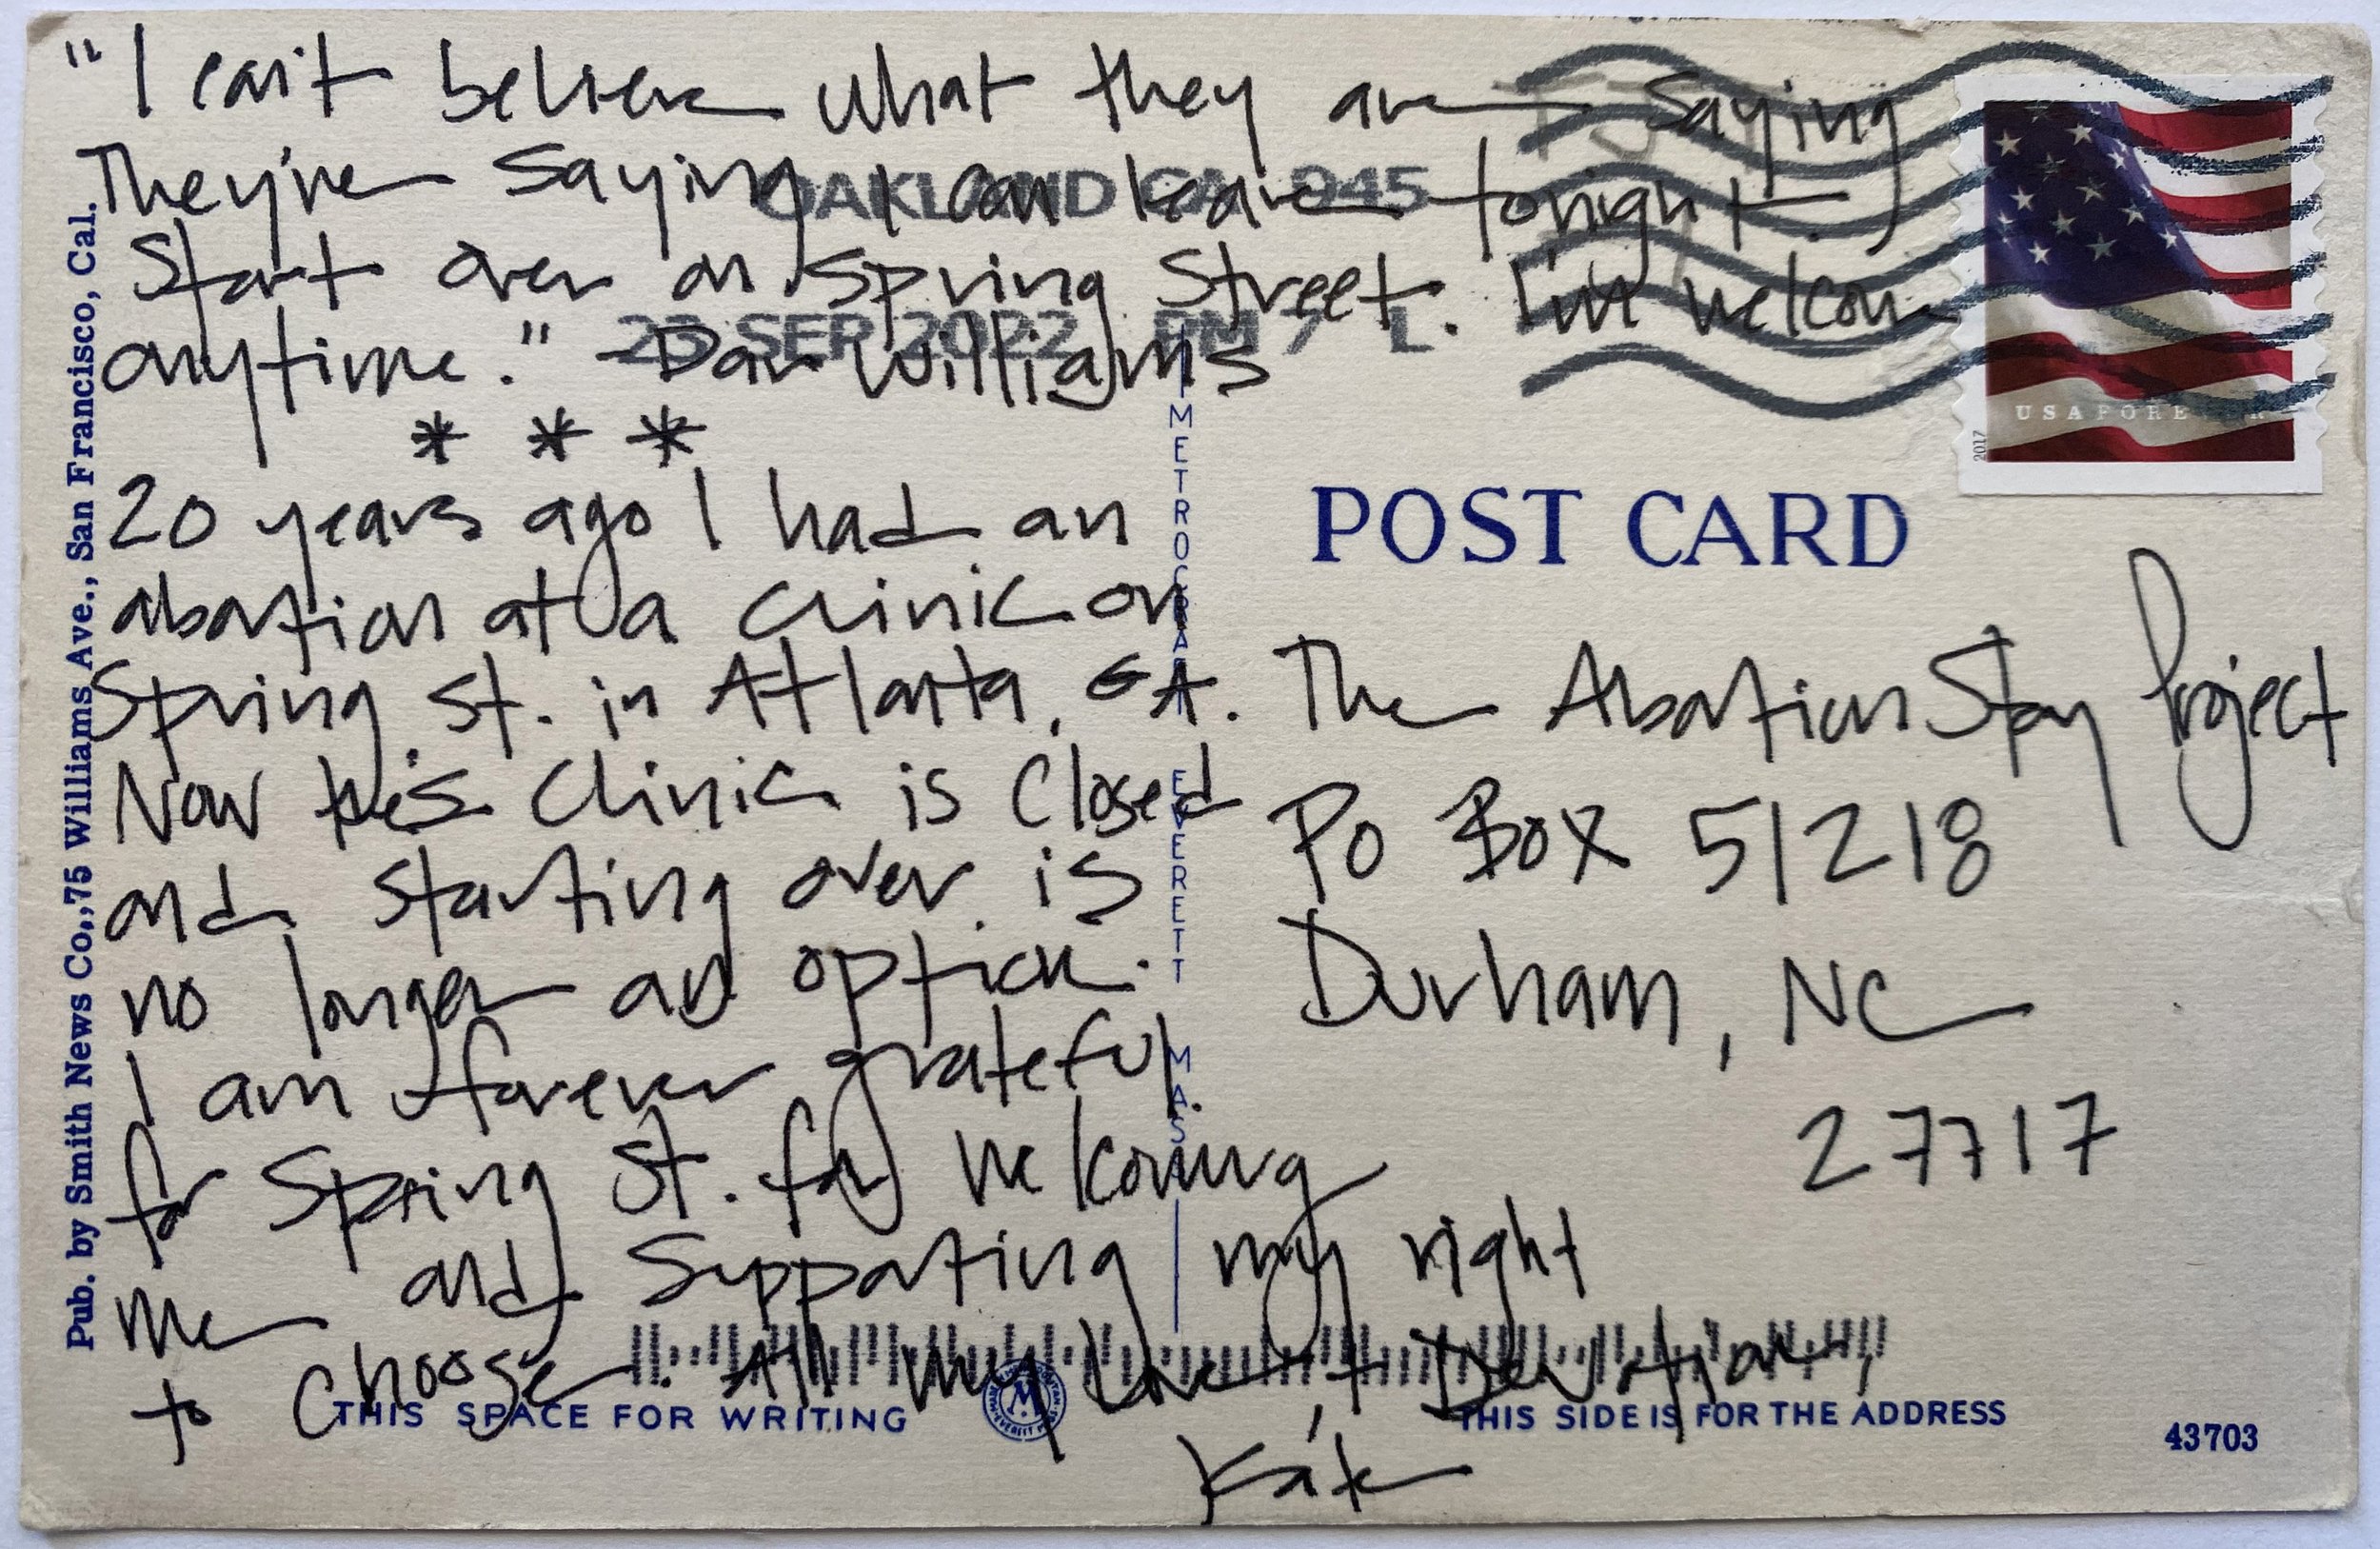 "I can't believe what they are saying
They're saying I can leave tonight.)
Start over on Spring Street. I'm welcome
anytime." - Dar Williams
* * *
20 years ago I had an
abortion at a clinic on
Spring St. in Atlanta, GA.
Now this clinic is closed
and starting over is
no longer an option.
I am forever grateful
for Spring St. for welcoming
me and supporting my right
to choose. All my Love, + Devotion,
Kate
OAKLAND CA 945
23 SEP 2022 PM 7 L
USA FOREVER
2017
POST CARD
The Abortion Story Project
PO Box 51218
Durham, NC
27717
Pub. by Smith News Co., 75 Williams Ave., San Francisco, Cal.
METROCRAFT EVERETT MASS
THIS SPACE FOR WRITING
M
THIS SIDE IS FOR THE ADDRESS
43703